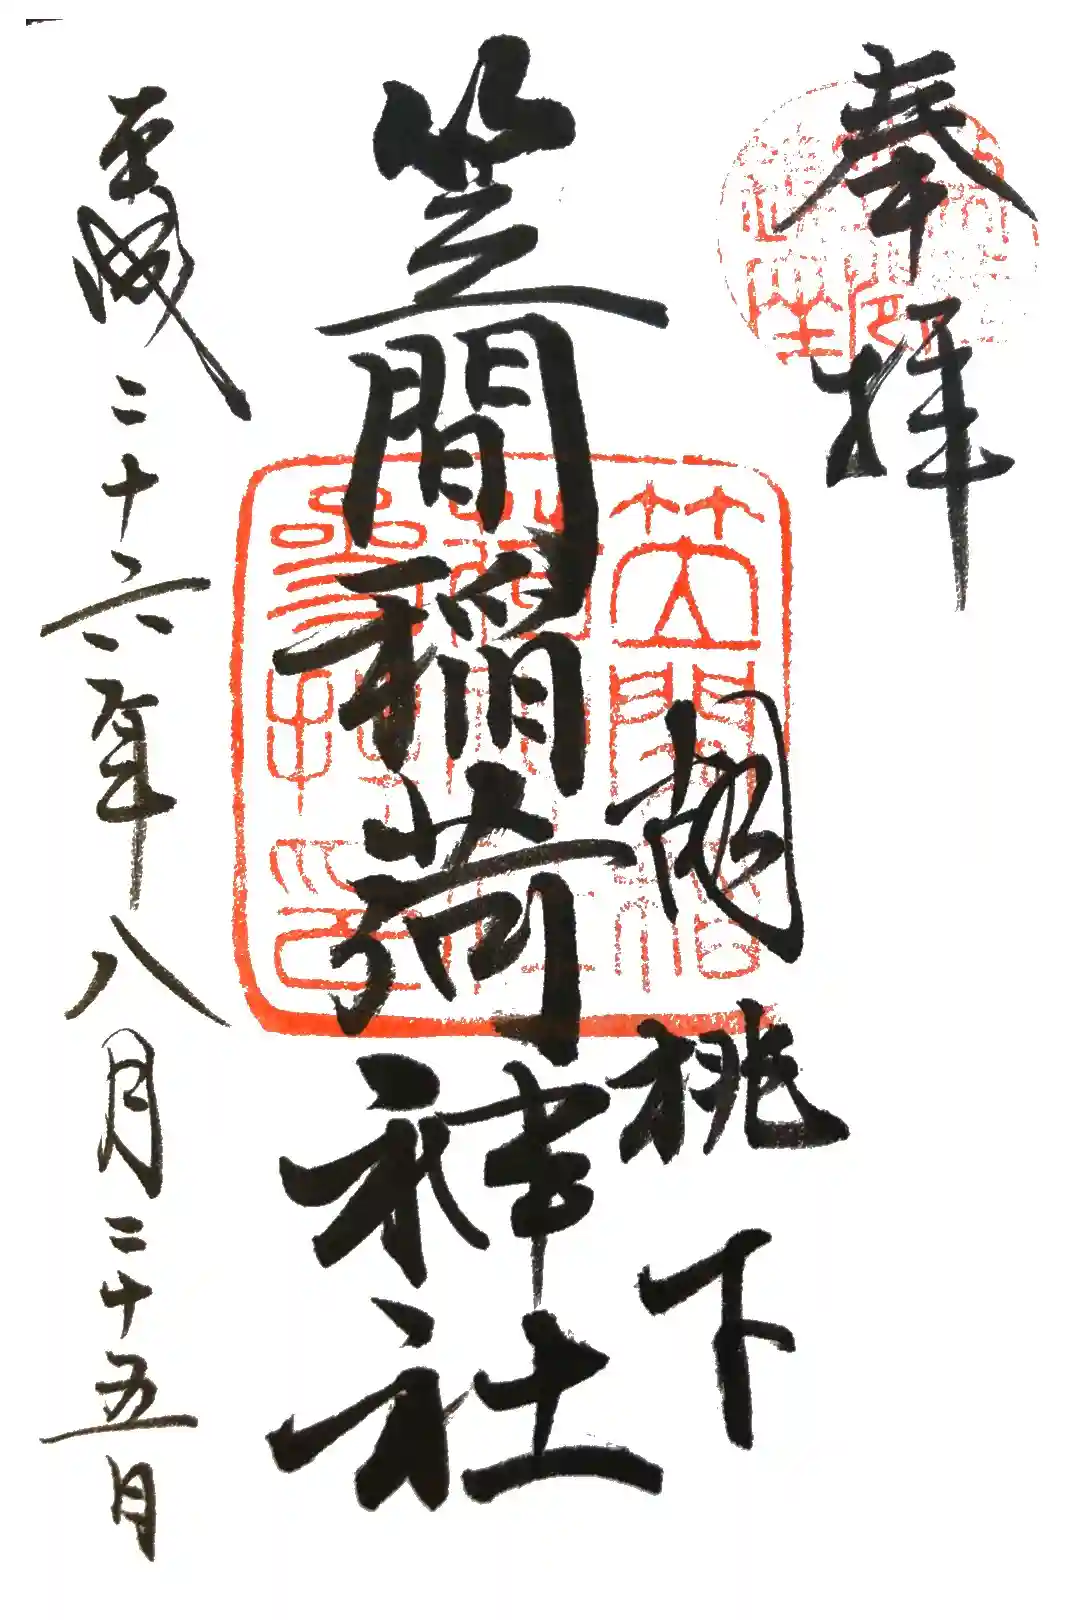 奉拝
胡桃下
笠間稲荷神社
平成二十六年八月二十五日
笠間稲
荷神社
参拝印